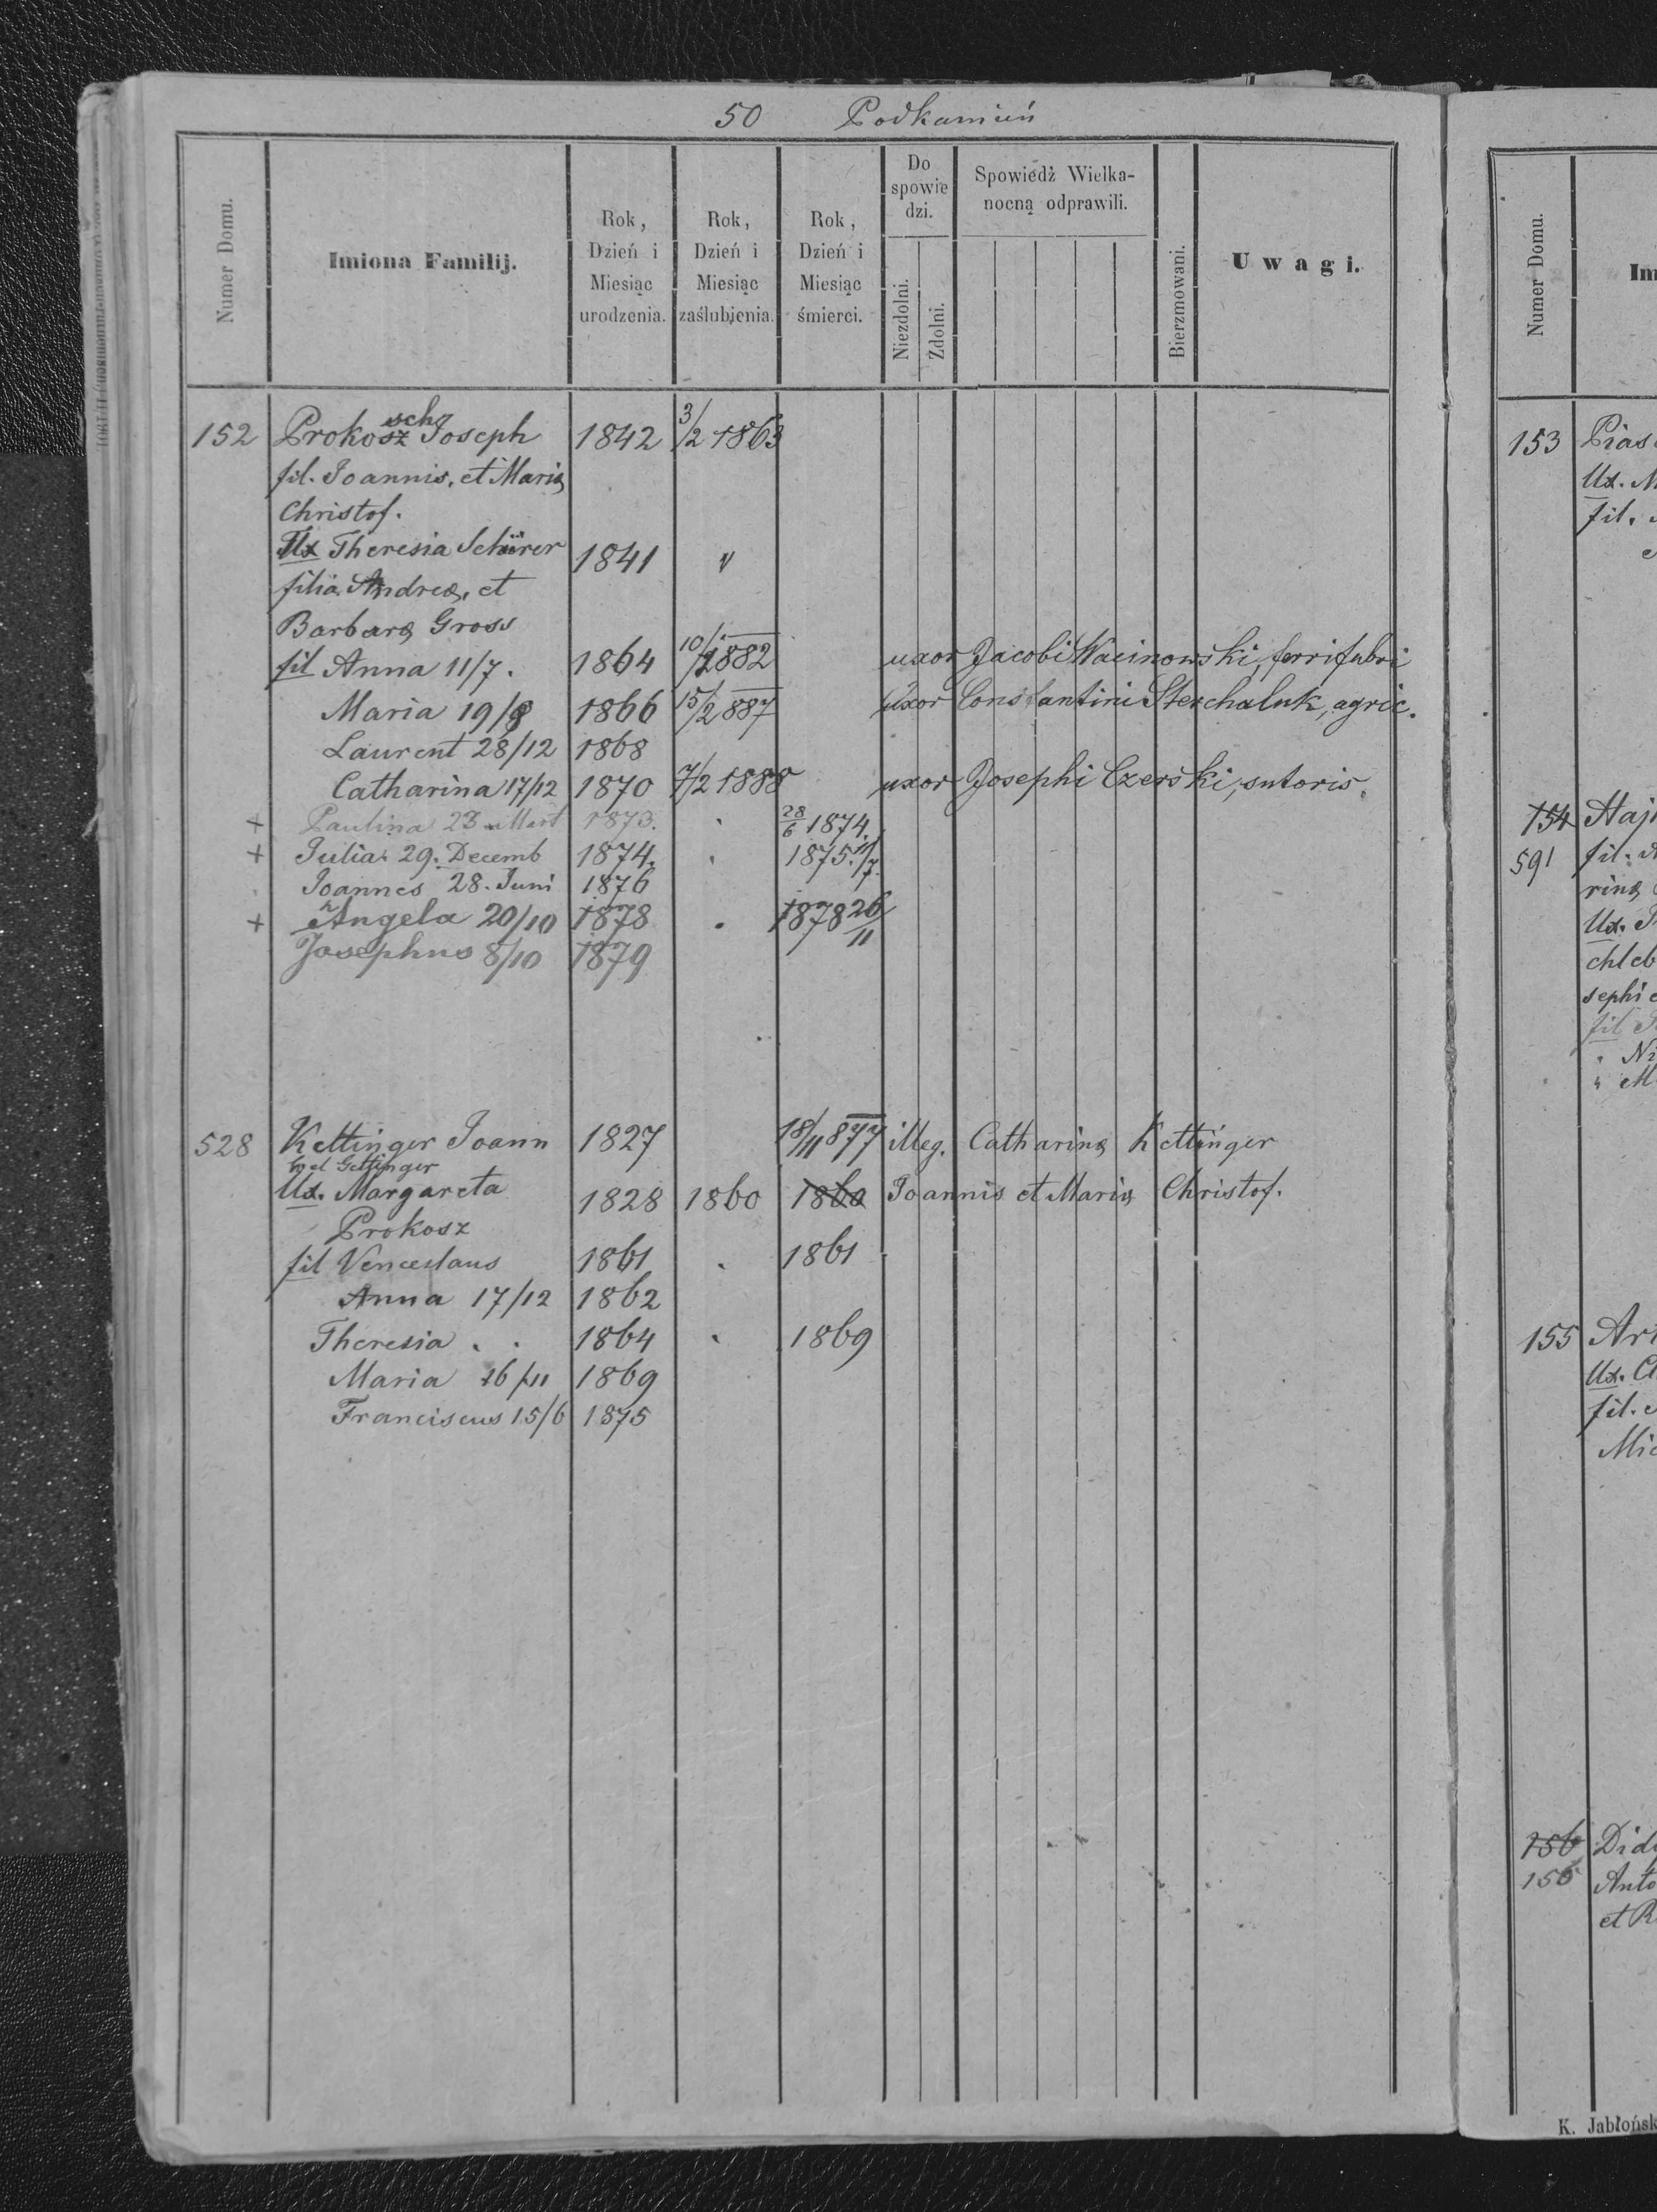 50 Podkamień
Numer Domu.
Imiona Familij.
Rok, Dzień i Miesiąc urodzenia.
Rok, Dzień i Miesiąc zaślubienia.
Rok, Dzień i Miesiąc śmierci.
Do spowiedzi.
Niezdolni.
Zdolni.
Spowiedź Wielka-
nocną odprawili.
Bierzmowani.
Uwagi.
schz
152 Prokosz Joseph 1842 3/2 1863
fil. Joannis, et Mariæ
Christof.
Ux Theresia Schürer 1841 "
filia Andreæ, et
Barbaræ Gross
fil Anna 11/7. 1864 1882 uxor Jacobi Wacinowski, ferrifabri
Maria 19/8 1866 15/2 887 uxor Constantini Sterchaluk, agric.
Laurent 28/12 1868
Catharina 17/12 1870 7/2 1888 uxor Josephi Czerski, sutoris.
+ Paulina 23 Mart 1873. 28/6 1874.
+ Julia 29. Decemb 1874. 1875.
Joannes 28. Juni 1876
+ Angela 20/10 1878 . 1878 26/11
Josephus 8/10 1879
528 Kettinger Joann 1827 18/11 877 illeg. Catharinæ Kettinger
vel Gettinger
Ux. Margareta 1828 1860 1860 Joannis et Mariæ Christof.
Prokosz
fil Venceslaus 1861 . 1861
Anna 17/12 1862
Theresia . . 1864 . 1869
Maria 26/11 1869
Franciscus 15/6 1875
Numer Domu.
Im
153 Pias
Ux. M
fil.
154 Haj
591 fil.
rinæ
Ux.
chleb
sephi
fil
" Ni
" M
155 Ar
Ux. Cl
fil.
Mic
156 Did
156 Anto
et R
K. Jabłońsk